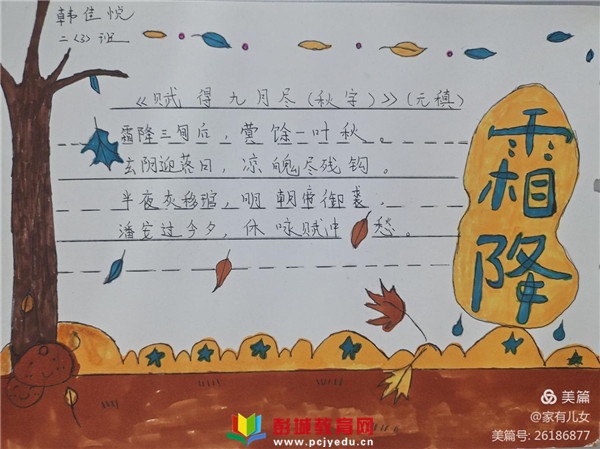 韩佳悦
二〈3〉班
《赋得九月尽(秋字)》(元稹)
霜降三旬后,蓂馀一叶秋。
玄阴迎落日,凉魄尽残钩。
半夜灰移琯,明朝帝御裘。
潘安过今夕,休咏赋中愁。
霜降
彭城教育网
www.pcjyedu.cn
美篇
@家有儿女
美篇号: 26186877